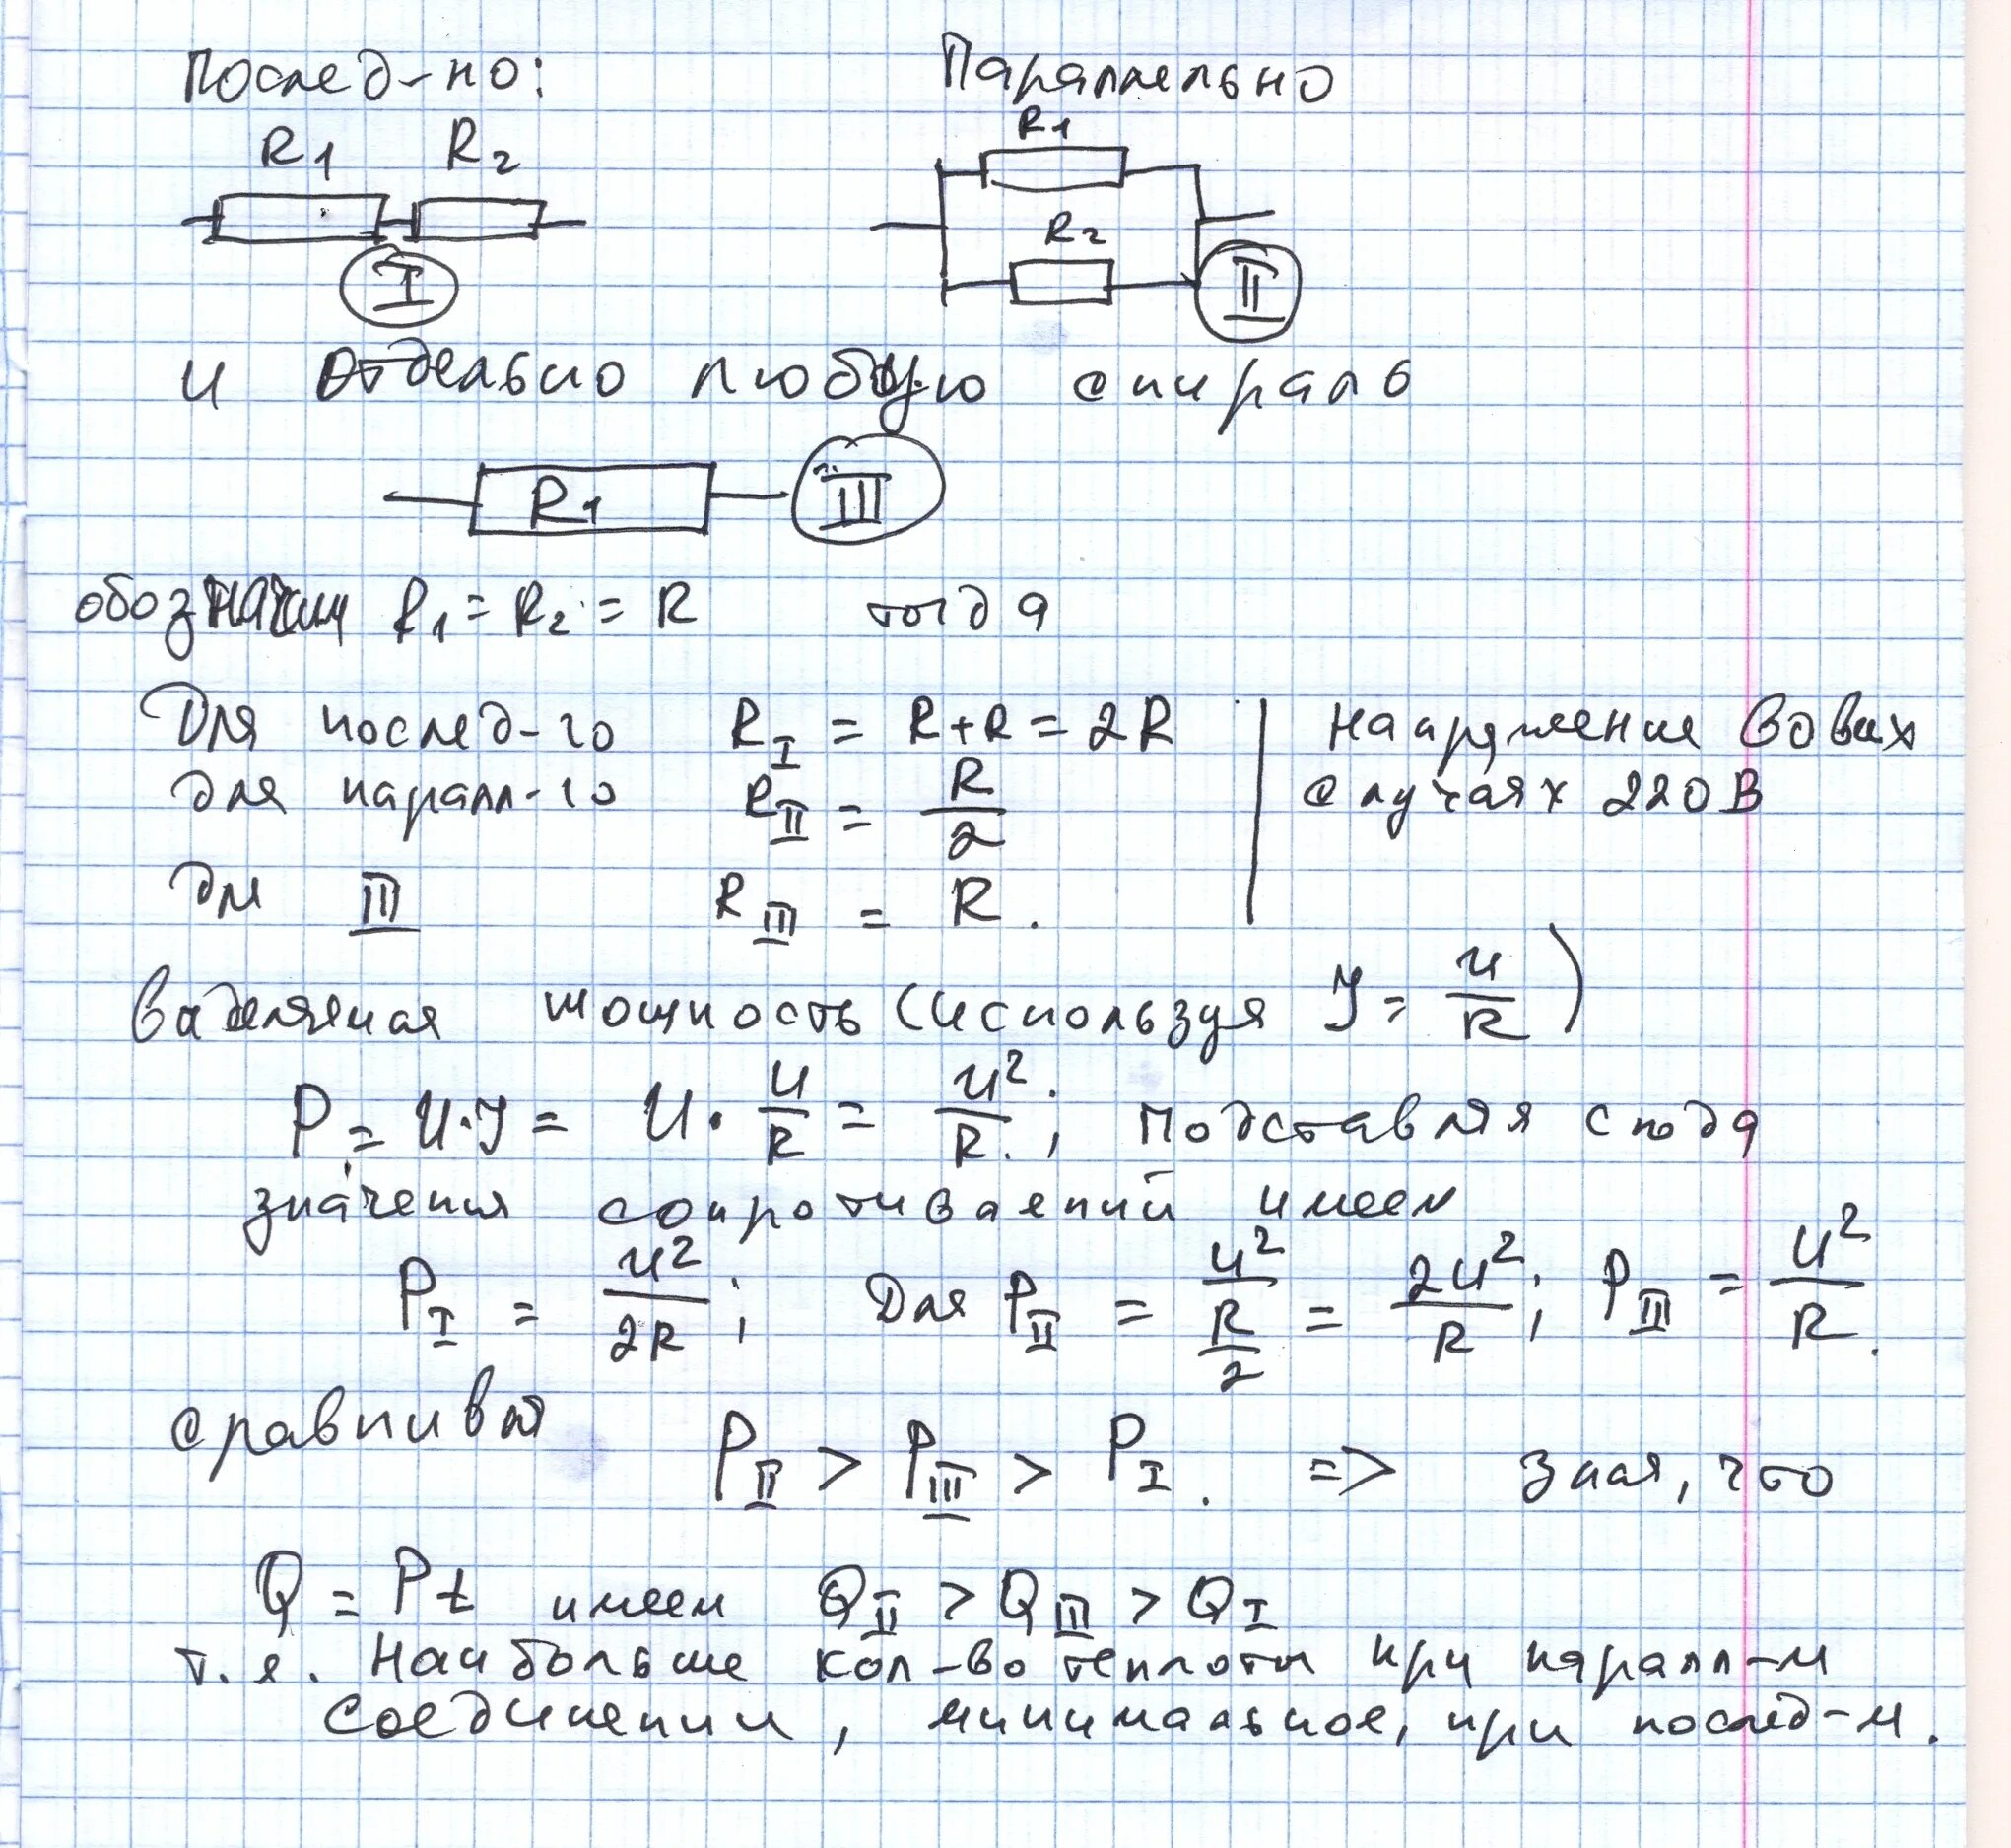 Послед-но:
Параллельно
R1 R2
R1
R2
I
II
и отдельно любую спираль
R1
III
обозначим R₁ = R₂ = R тогда
Для послед-го R_I = R+R = 2R
для паралл-го R_II = R/2
для III R_III = R.
напряжение во всех
случаях 220В
выделяемая мощность (используя J = U/R)
P = U·J = U·U/R = U²/R; подставляя сюда
значения сопротивлений имеем
P_I = U²/2R; Для P_II = U²/(R/2) = 2U²/R; P_III = U²/R.
сравнивая P_II > P_III > P_I. => зная, что
Q = Pt имеем Q_II > Q_III > Q_I
т.е. наибольшее кол-во теплоты при паралл-м
соединении, минимальное, при послед-м.